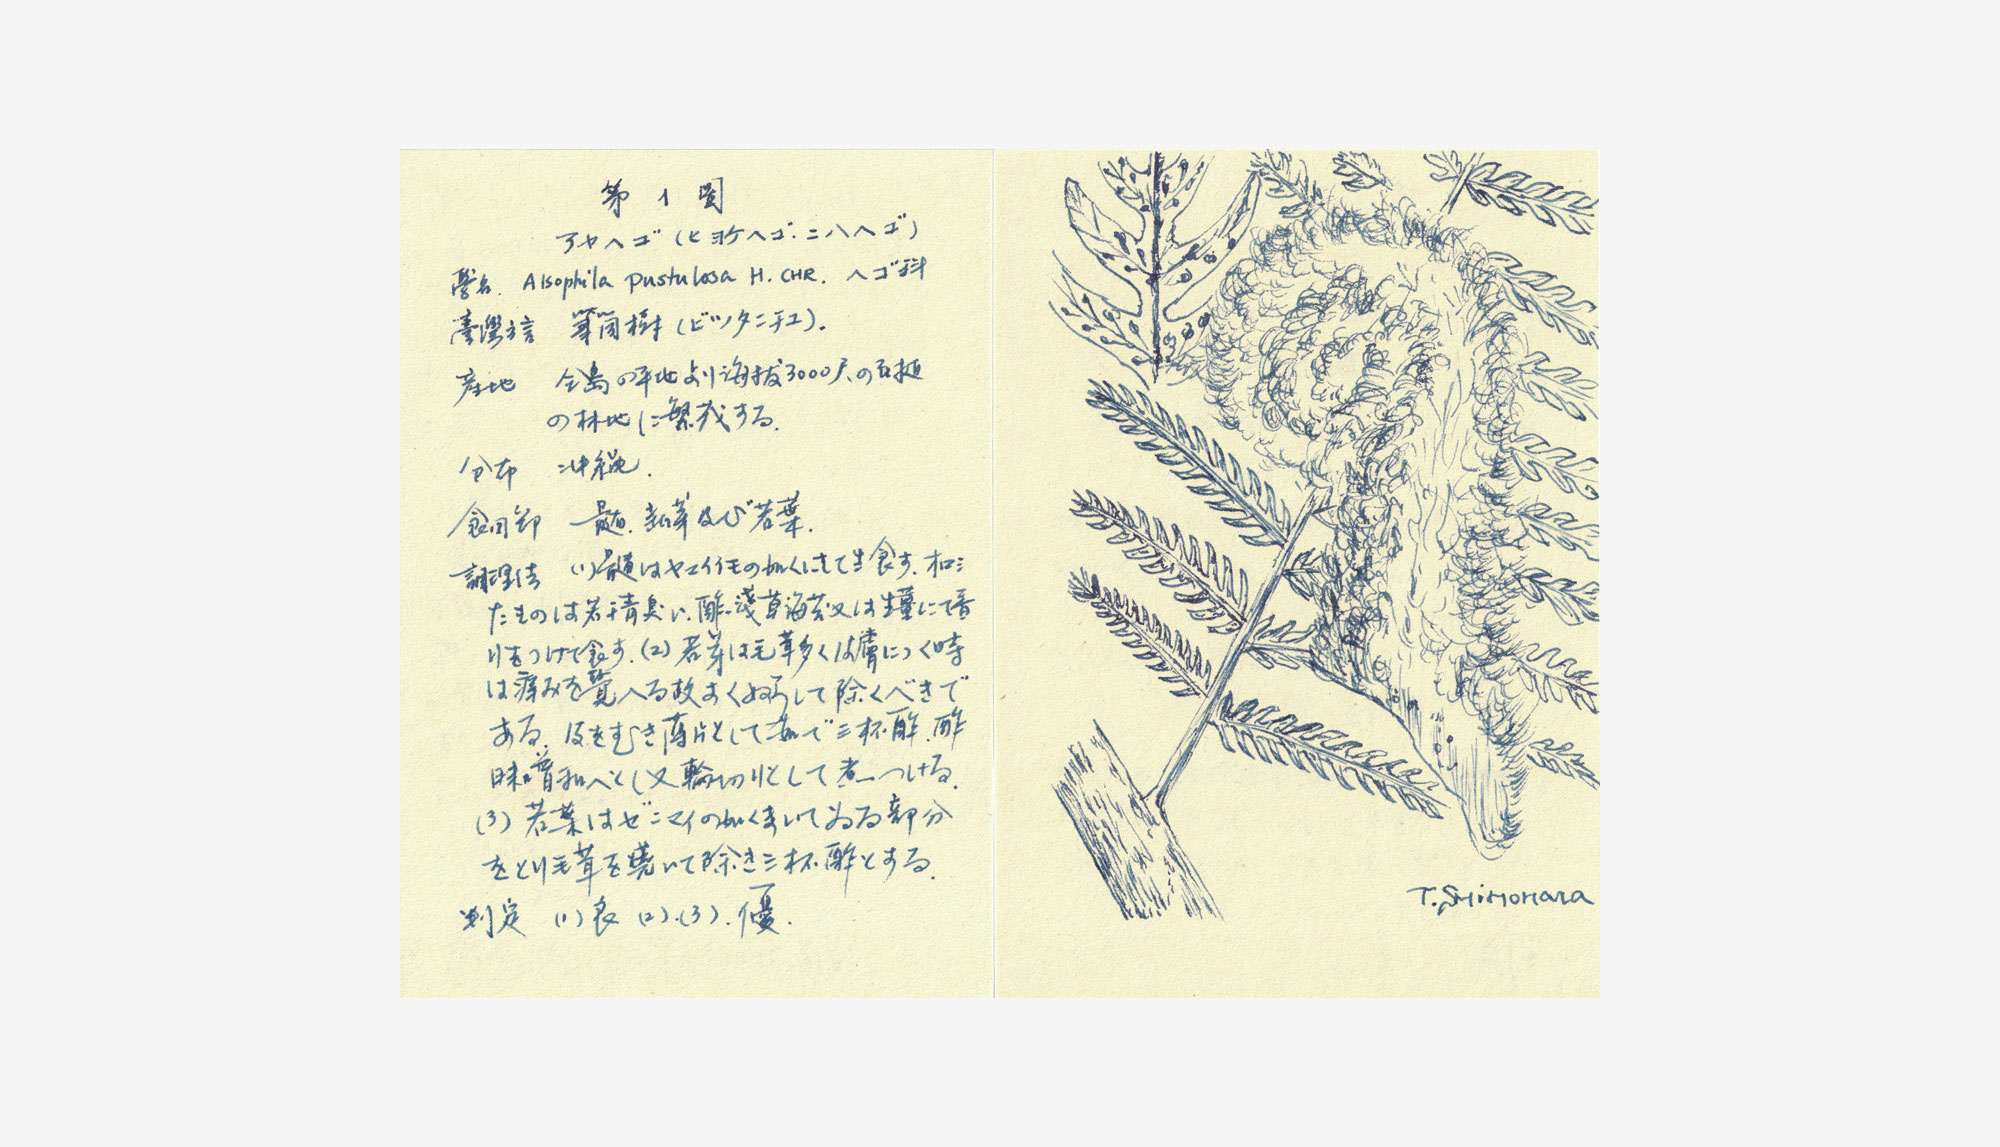 第1圖
アヤヘゴ(ヒヨケヘゴ.ニハヘゴ)
學名. Alsophila pustulosa H. CHR. ヘゴ科
臺灣方言 筆筒樹(ビツタンチユ).
產地 全島の平地より海拔3000尺の
の林地に繁茂する.
分布 沖繩.
食用部 髓.新芽及び若葉.
調理法 (1)髓はヤマイモの如くにして生食す.
たものは若干青臭い.酢.淺草海苔又は生薑にて香
りをつけて食す.(2)若芽は毛茸多く皮膚につく時
は痛みを覺へる故すくぬらして除くべきで
ある.皮をむき薄片として茹で三杯酢.酢
味噌和へとし又輪切りとして煮つける.
(3)若葉はゼンマイの如くまいてゐる部分
をとり毛茸を燒いて除き三杯酢とする.
判定 (1)良 (2).(3).優.
T. Shimohara